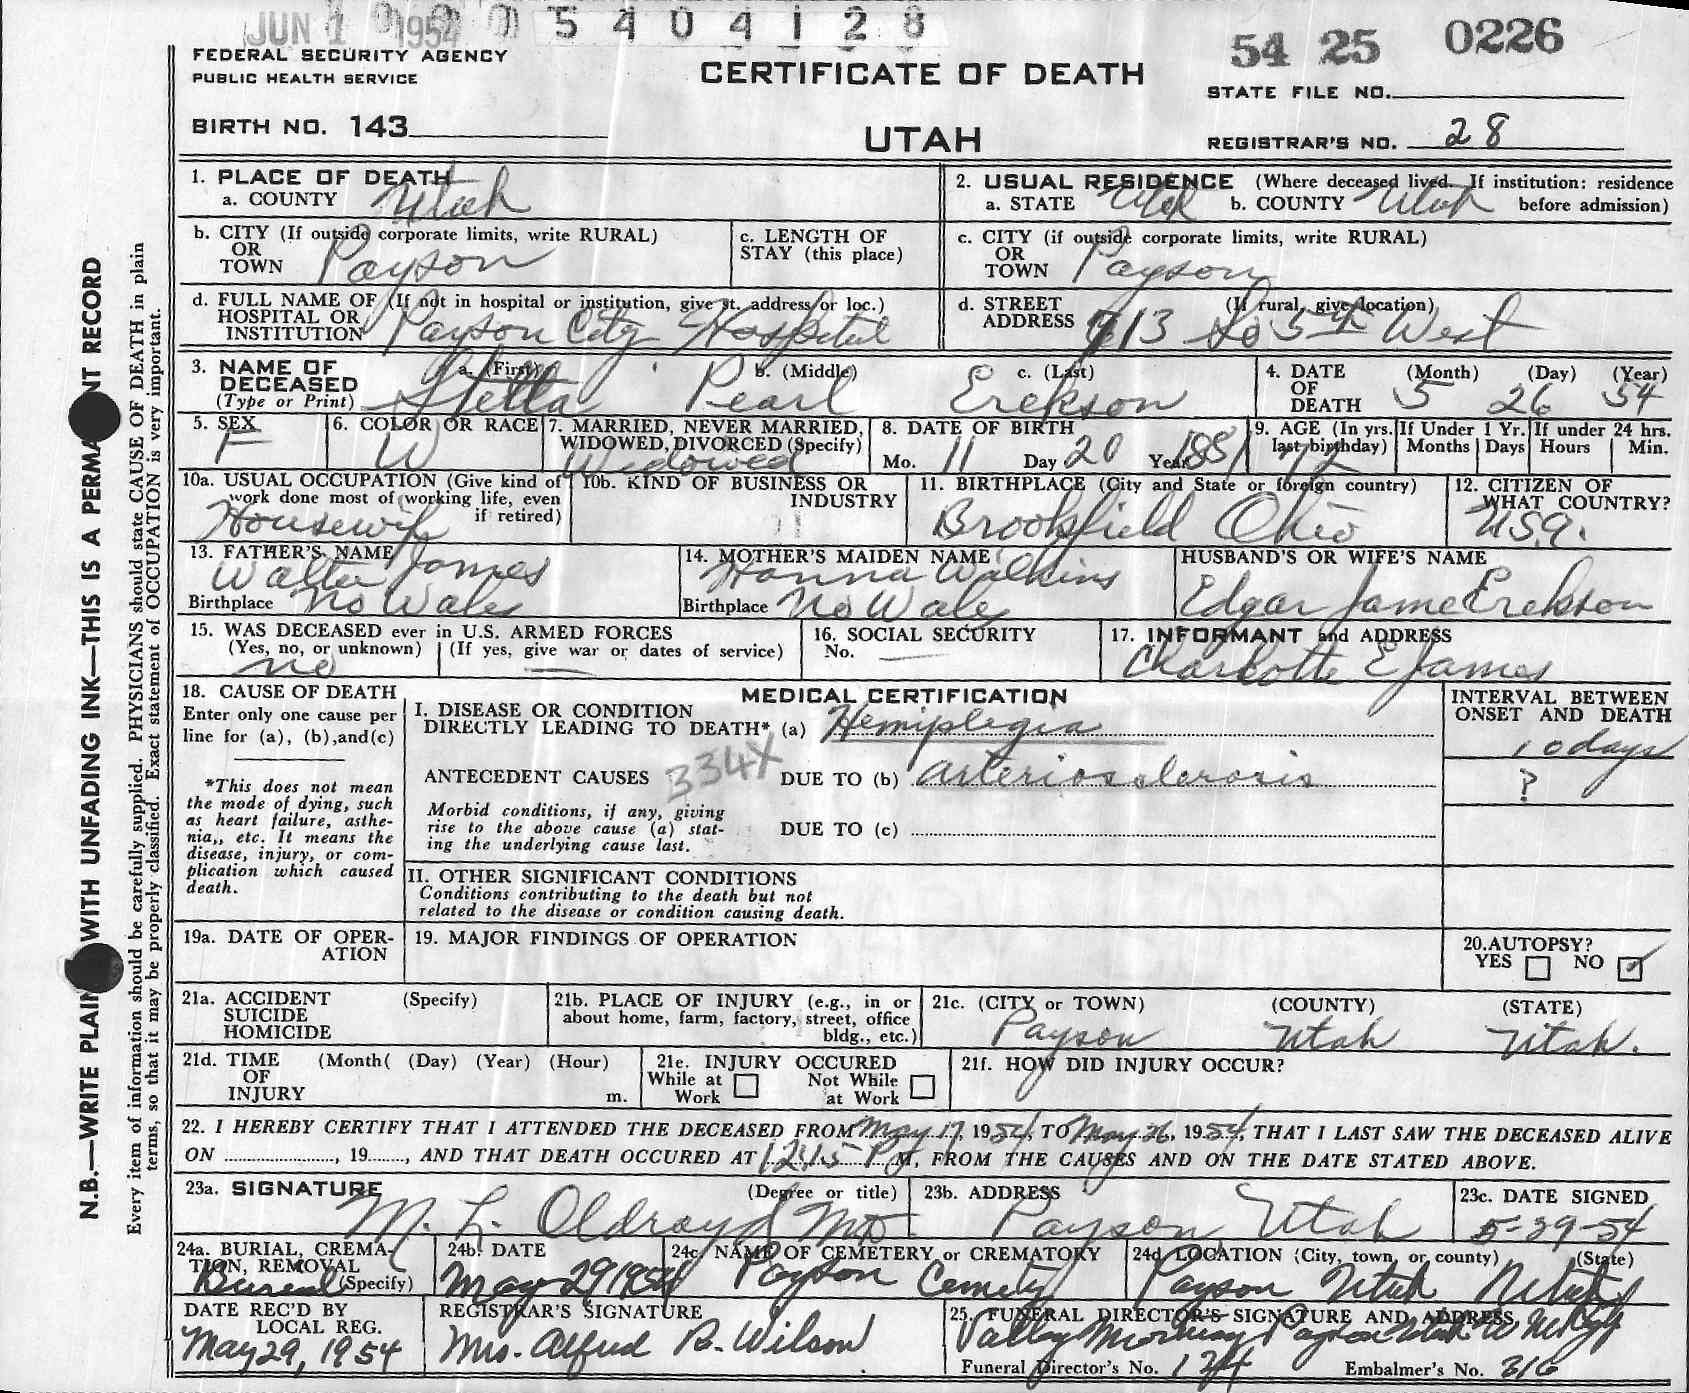 JUN 1 1954 5 4 0 4 1 2 8
54 25 0226
FEDERAL SECURITY AGENCY
PUBLIC HEALTH SERVICE
CERTIFICATE OF DEATH
STATE FILE NO.
BIRTH NO. 143
UTAH
REGISTRAR'S NO. 28
N.B.—WRITE PLAIN WITH UNFADING INK—THIS IS A PERMA NT RECORD
Every item of information should be carefully supplied. PHYSICIANS should state CAUSE OF DEATH in plain
terms, so that it may be properly classified. Exact statement of OCCUPATION is very important.
1. PLACE OF DEATH
a. COUNTY Utah
2. USUAL RESIDENCE (Where deceased lived. If institution: residence
a. STATE Utah b. COUNTY Utah before admission)
b. CITY (If outside corporate limits, write RURAL)
OR
TOWN Payson
c. LENGTH OF
STAY (this place)
c. CITY (if outside corporate limits, write RURAL)
OR
TOWN Payson
d. FULL NAME OF (If not in hospital or institution, give st. address or loc.)
HOSPITAL OR
INSTITUTION Payson City Hospital
d. STREET (If rural, give location)
ADDRESS 713 So 5th West
3. NAME OF
DECEASED
(Type or Print)
a. (First) b. (Middle) c. (Last)
Stella Pearl Erekson
4. DATE (Month) (Day) (Year)
OF
DEATH 5 26 54
5. SEX
F
6. COLOR OR RACE
W
7. MARRIED, NEVER MARRIED,
WIDOWED, DIVORCED (Specify)
Widowed
8. DATE OF BIRTH
Mo. 11 Day 20 Year 1881
9. AGE (In yrs.
last birthday)
72
If Under 1 Yr.
Months Days
If under 24 hrs.
Hours Min.
10a. USUAL OCCUPATION (Give kind of
work done most of working life, even
if retired)
Housewife
10b. KIND OF BUSINESS OR
INDUSTRY
11. BIRTHPLACE (City and State or foreign country)
Brookfield Ohio
12. CITIZEN OF
WHAT COUNTRY?
U.S.A.
13. FATHER'S NAME
Walter James
Birthplace No Wales
14. MOTHER'S MAIDEN NAME
Hanna Walkins
Birthplace No Wales
HUSBAND'S OR WIFE'S NAME
Edgar James Erekson
15. WAS DECEASED ever in U.S. ARMED FORCES
(Yes, no, or unknown) (If yes, give war or dates of service)
no —
16. SOCIAL SECURITY
No. —
17. INFORMANT and ADDRESS
Charlotte E James
18. CAUSE OF DEATH
Enter only one cause per
line for (a), (b),and(c)
*This does not mean
the mode of dying, such
as heart failure, asthe-
nia,, etc. It means the
disease, injury, or com-
plication which caused
death.
MEDICAL CERTIFICATION
I. DISEASE OR CONDITION
DIRECTLY LEADING TO DEATH* (a) Hemiplegia
INTERVAL BETWEEN
ONSET AND DEATH
10 days
ANTECEDENT CAUSES 334X DUE TO (b) arteriosclerosis ?
Morbid conditions, if any, giving
rise to the above cause (a) stat-
ing the underlying cause last.
DUE TO (c)
II. OTHER SIGNIFICANT CONDITIONS
Conditions contributing to the death but not
related to the disease or condition causing death.
19a. DATE OF OPER-
ATION
19. MAJOR FINDINGS OF OPERATION
20.AUTOPSY?
YES NO ✓
21a. ACCIDENT (Specify)
SUICIDE
HOMICIDE
21b. PLACE OF INJURY (e.g., in or
about home, farm, factory, street, office
bldg., etc.)
21c. (CITY or TOWN) (COUNTY) (STATE)
Payson Utah Utah.
21d. TIME (Month( (Day) (Year) (Hour)
OF
INJURY m.
21e. INJURY OCCURED
While at Work Not While at Work
21f. HOW DID INJURY OCCUR?
22. I HEREBY CERTIFY THAT I ATTENDED THE DECEASED FROM May 17, 1954, TO May 26, 1954, THAT I LAST SAW THE DECEASED ALIVE
ON , 19 , AND THAT DEATH OCCURED AT 12:15 P M, FROM THE CAUSES AND ON THE DATE STATED ABOVE.
23a. SIGNATURE (Degree or title)
M. L. Oldroyd MD
23b. ADDRESS
Payson Utah
23c. DATE SIGNED
5-29-54
24a. BURIAL, CREMA-
TION, REMOVAL
(Specify)
Burial
24b. DATE
May 29 1954
24c. NAME OF CEMETERY or CREMATORY
Payson Cemetery
24d. LOCATION (City, town, or county) (State)
Payson Utah Utah
DATE REC'D BY
LOCAL REG.
May 29, 1954
REGISTRAR'S SIGNATURE
Mrs. Alfred B. Wilson
25. FUNERAL DIRECTOR'S SIGNATURE AND ADDRESS
Valley Mortuary Payson Utah
Funeral Director's No. 124 Embalmer's No. 316